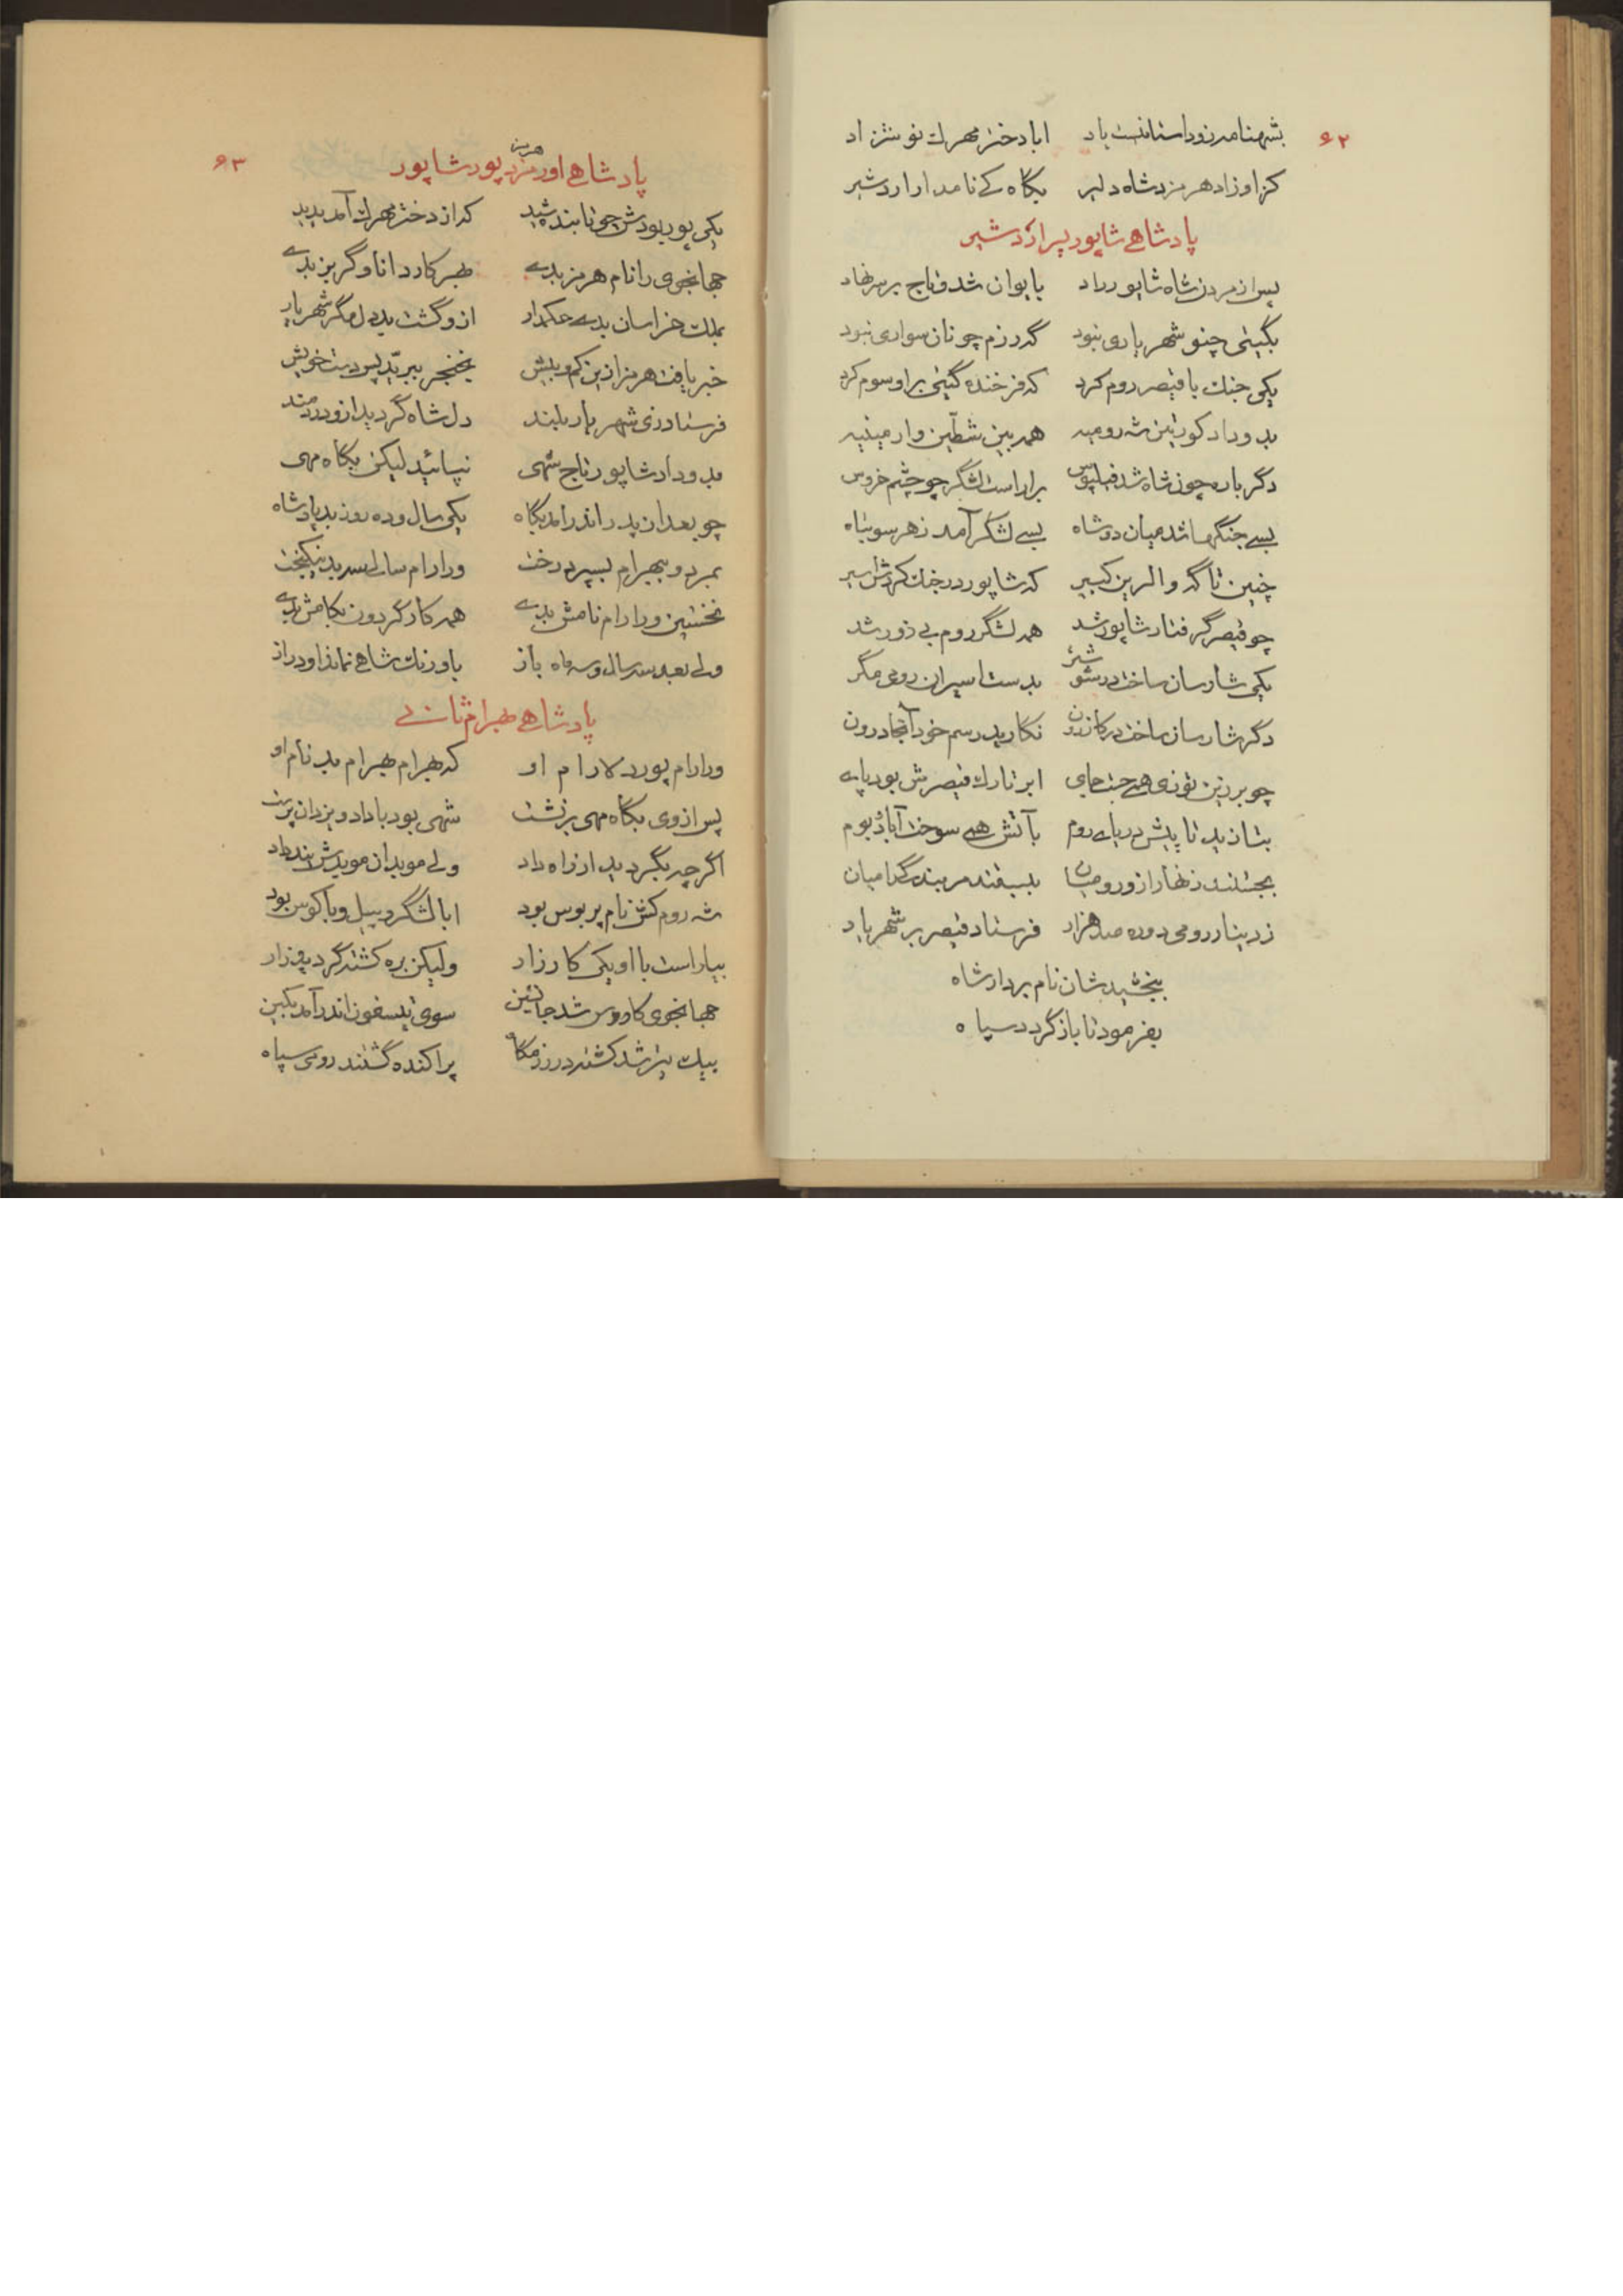 ۶۲
بشهنامه زو داستانست یاد ابا دختر مهرك نوشزاد
کزاو زاد هرمزد شاه دلیر بگاه کے نامدار اردشیر
پادشاهے شاپور پسر اردشیر
پس از مردن شاه شاپور راد بایوان شد و تاج بر سر نهاد
بگیتی چنو شهریاری نبود گه رزم چونان سواری نبود
یکی جنك با قیصر روم کرد که فرخنده گیتی براو سوم کرد
بدو داد کورتین شه رومیه همه بین شطین وارمینیه
دگر باره چون شاه شد فیلپوس براراست لشگر چو چشم خروس
بسے جنگها شد میان دو شاه بسے لشگر آمد ز هر سو تباه
چنین تا گه والرین کبیر که شاپور در جنك کردش اسیر
چو قیصر گرفتار شاپور شد همه لشگر روم بے زور شد
یکی شارسان ساخت در شوشتر بدست اسیران رومی مگر
دگر شارسان ساخت در کازرون نگارید رسم خود آنجا درون
چو بر زین توزی همے جست جای ابر تارك قیصرش بود پاے
بتازید تا پیش دریاے روم بآتش همے سوخت آباد و بوم
بجستند زنهار ازو رومیان ببستند مر بندگی را میان
ز دینار رومی دو ده صد هزار فرستاد قیصر بر شهریار
ببخشیدشان نام بردار شاه
بفرمود تا باز گردد سپاه
۶۳
پادشاهے اورمزد پور شاپور
هرمز
یکی پور بودش چو تابنده شید که از دختر مهرك آمد پدید
جهانجوی را نام هرمز بدے بهر کار دانا و گربز بدے
بملك خراسان بدے حکمدار ازو گشت بد دل مگر شهریار
خبر یافت هرمز ازین کم و بیش بخنجر ببرّید پس دست خویش
فرستاد زی شهریار بلند دل شاه گردید ازو دردمند
بدو داد شاپور تاج شهی نپائید لیکن بگاه مهی
چو بعد از پدر اندر آمد بگاه یکی سال و ده روز بد پادشاه
بمرد و ببهرام بسپرد رخت ورارام سالے سه بد نیکبخت
نخستین ورارام نامش بدے همه کار گردون بکامش بدے
ولے بعد سه سال و سه ماه باز باورنك شاهے نماند او دراز
پادشاهے بهرام ثانے
ورارام پور دلارام او که بهرام بهرام بد نام او
پس از وی بگاه مهی بر نشست شهی بود با داد و یزدان پرست
اگرچه بگردید از راه داد ولے موبدان موبدش پند داد
شه روم کش نام پربوس بود ابا لشگر و پیل و با کوس بود
بیاراست با او یکی کارزار ولیکن بره کشته گردید زار
جهانجوی کاروس شد جانشین سوی تیسفون اندر آمد بکین
بیك تیر شد کشته در رزمگاه پراکنده گشتند رومی سپاه